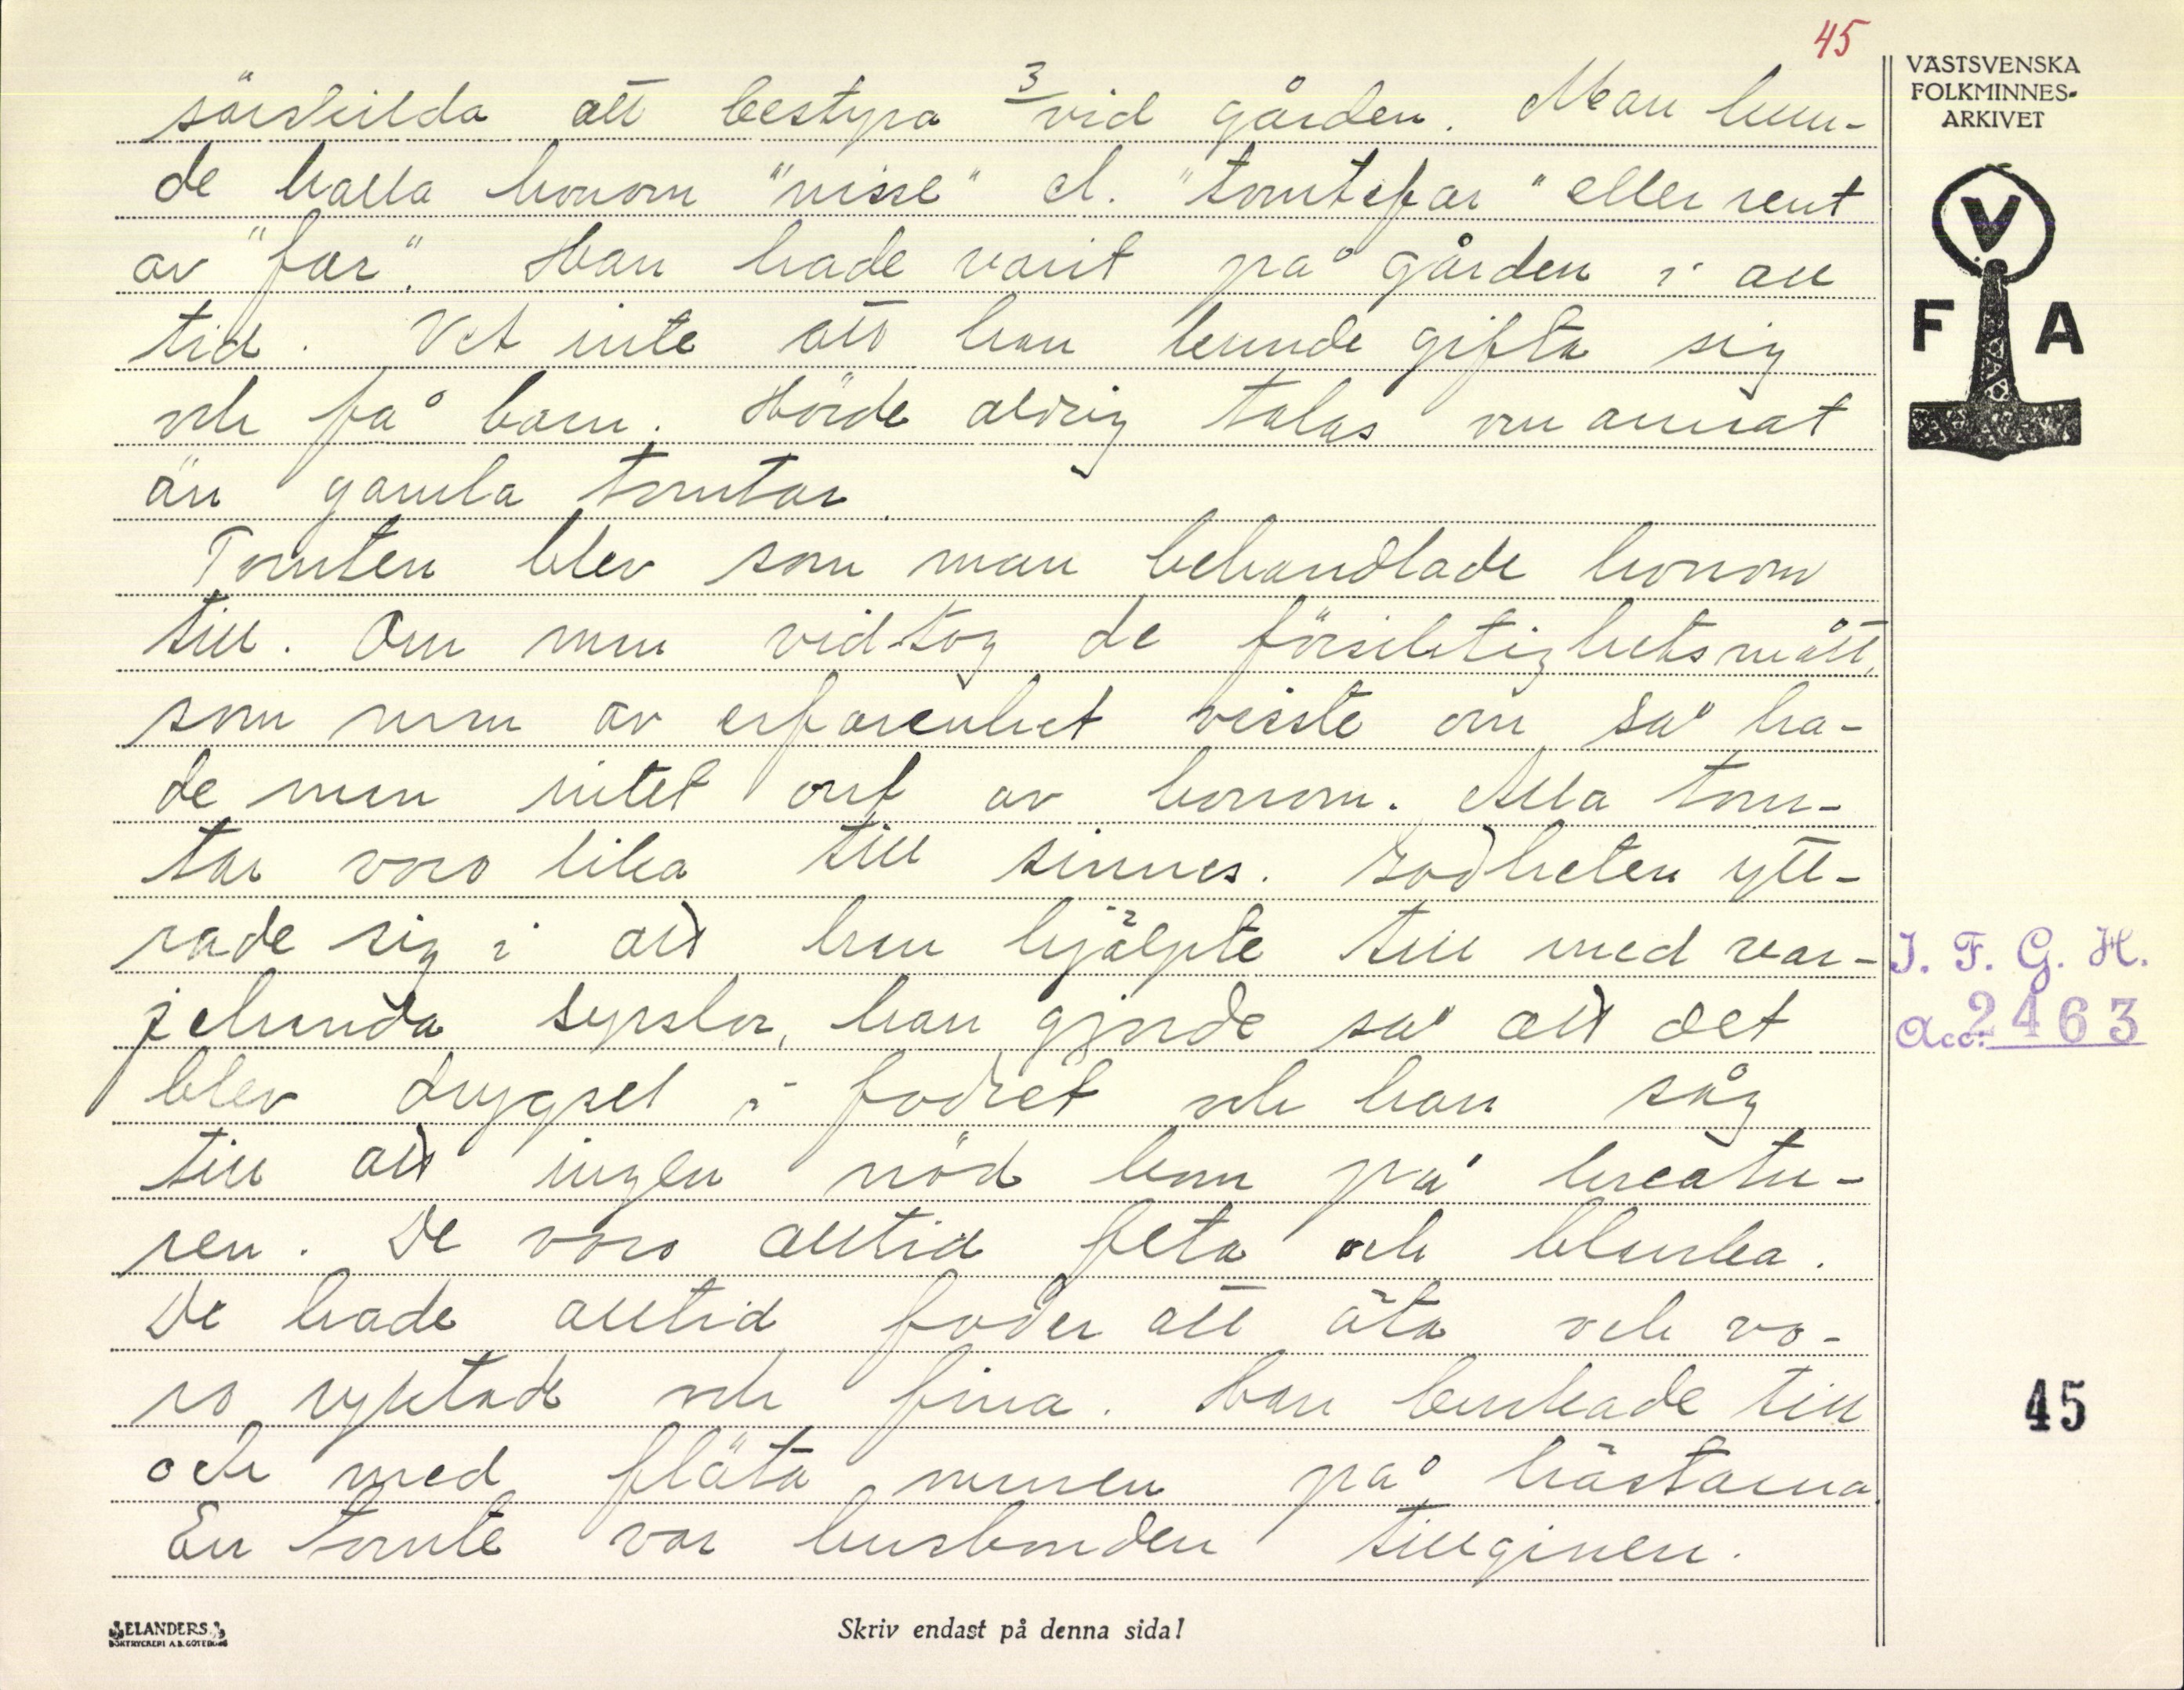 45
VÄSTSVENSKA
FOLKMINNES-
ARKIVET
3
särskilda att bestyra vid gården. Man kun-
de kalla honom "nisse" el. "tomtefar" eller rent
av "far". Han hade varit på gården i all
tid. Vet inte att han kunde gifta sig
och få barn. Hörde aldrig talas om annat
än gamla tomtar.
Tomten blev som man behandlade honom
till. Om man vidtog de försiktighetsmått,
som man av erfarenhet visste om så ha-
de man intet ont av honom. Alla tom-
tar voro lika till sinnes. Godheten ytt-
rade sig i att han hjälpte till med var-
jehanda sysslor, han gjorde så att det
blev drygsel i fodret och han såg
till att ingen nöd kom på kreatu-
ren. De voro alltid feta och blanka.
De hade alltid foder att äta och vo-
ro ryktade och fina. Han brukade till
och med fläta manen på hästarna.
En tomte var husbonden tillgiven.
V
F A
I. F. G. H.
Acc. 2463
45
ELANDERS
BOKTRYCKERI A.B. GÖTEBORG
Skriv endast på denna sida!